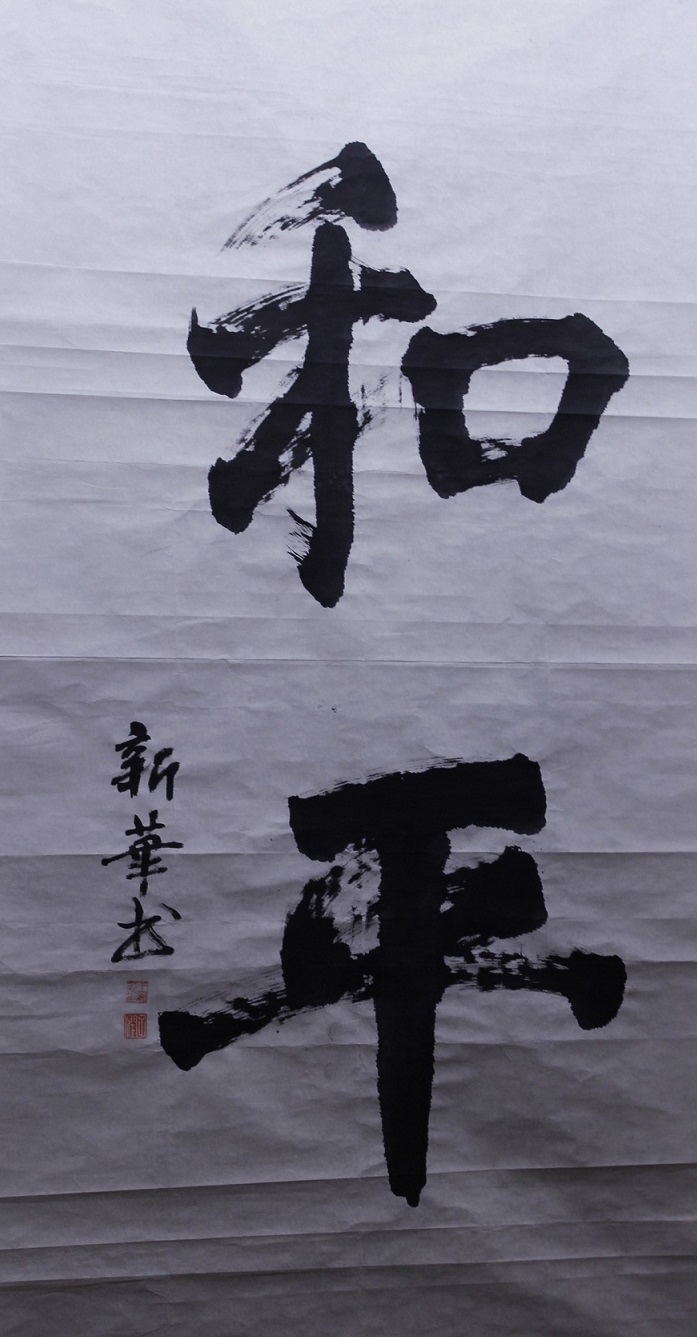 和平
新華书